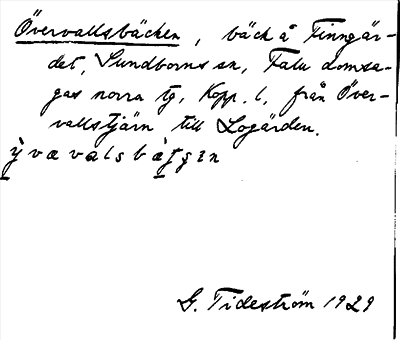 Övervallsbäcken, bäck å Finngär-
det, Sundborns sn, Falu domsa-
gas norra tg, Kopp. l, från Över-
vallstjärn till Logärden.
ỳvœvalsbàʃsɪn
G. Tideström 1929